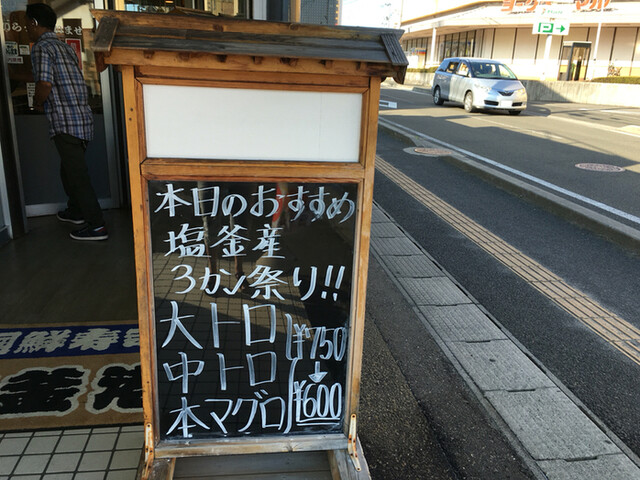 本日のおすすめ
塩釜産
3カン祭り!!
大トロ
中トロ
本マグロ
¥750
↓
¥600